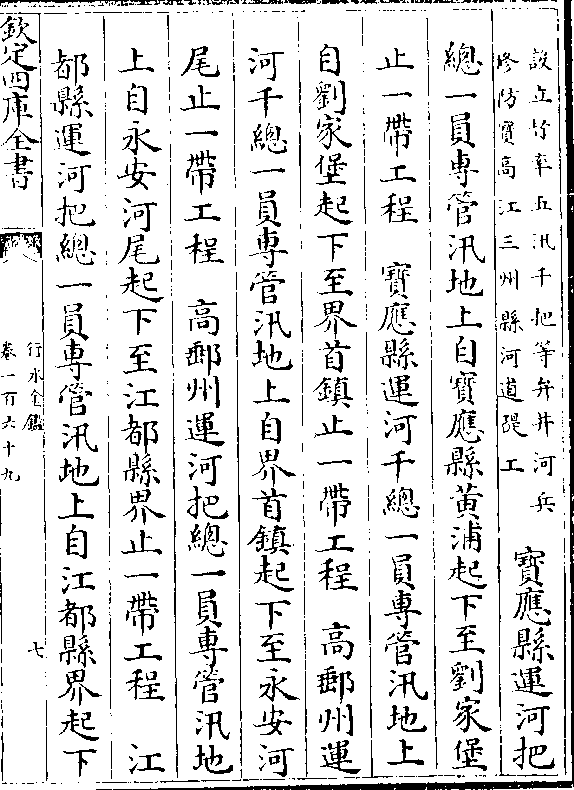 設立竹𥯤五汛千把等弁并河兵
修防寶高江三州縣河道隄工
寶應縣運河把
總一員専管汛地上自寶應縣黄浦起下至劉家堡
止一帶工程　寶應縣運河千總一員専管汛地上
自劉家堡起下至界首鎮止一帶工程　高郵州運
河千總一員専管汛地上自界首鎮起下至永安河
尾止一帶工程　高郵州運河把總一員専管汛地
上自永安河尾起下至江都縣界止一帶工程　江
都縣運河把總一員専管汛地上自江都縣界起下
欽定四庫全書
行水金鑑
卷一百六十九
七